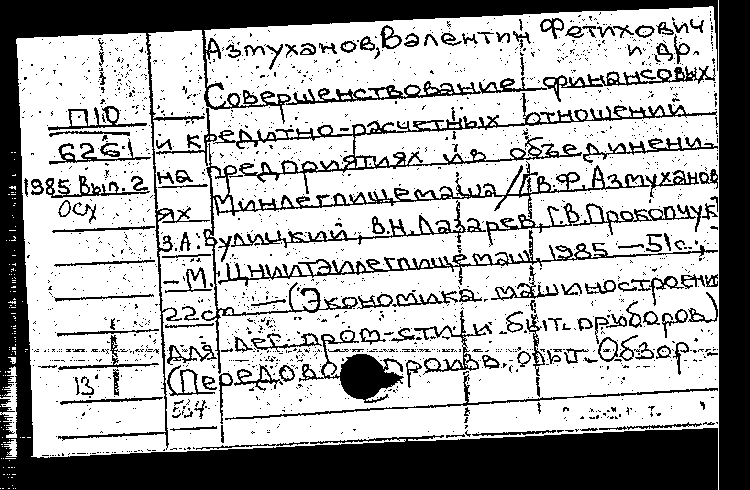 Азтуханов, Валентин Фетихович
и др.
Совершенствование финансовых
П10
6261
и кредитно-расчетных отношений
на предприятиях и в объединени-
1985 Вып. 2
ОСХ
ях Минлегпищемаша / В.Ф. Азтуханов
В.А. Вулицкий, В.Н. Лазарев, Г.В. Прокопчук
- М.: ЦНИИТЭИлегпищемаш, 1985 - 51с.;
22см - (Экономика машиностроени
для лег. пром-сти и быт. приборов)
13
(Передово произв. опыт. Обзор.
564